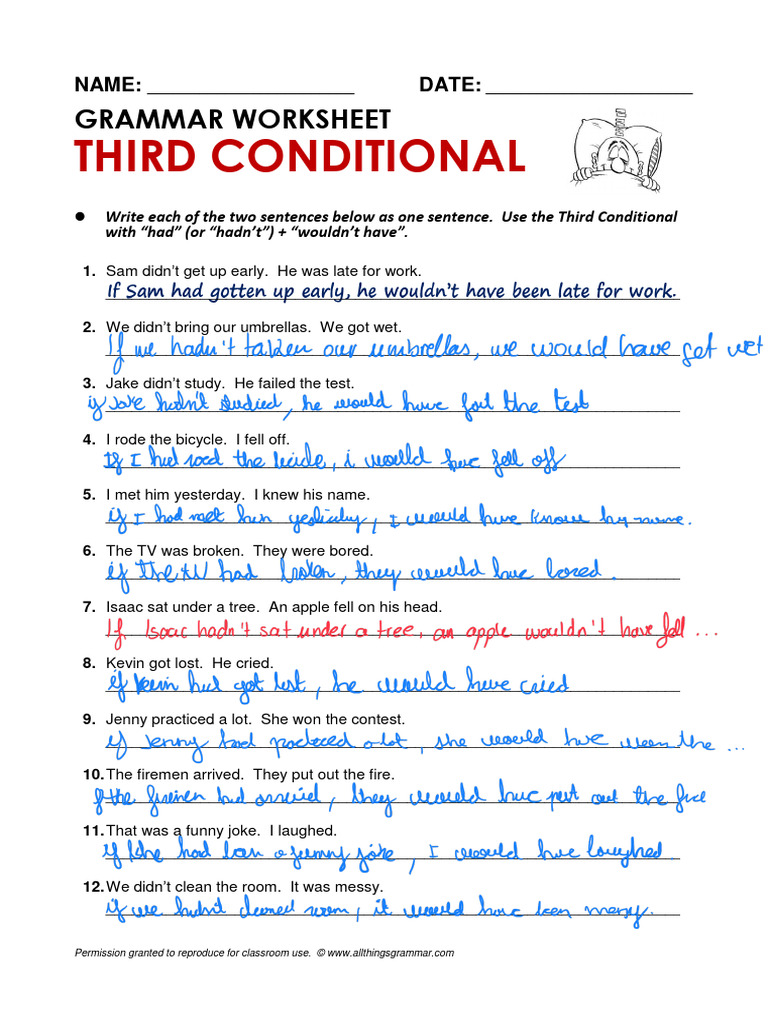 NAME: ____________________ DATE: ____________________
GRAMMAR WORKSHEET
THIRD CONDITIONAL
● Write each of the two sentences below as one sentence. Use the Third Conditional
with “had” (or “hadn’t”) + “wouldn’t have”.
1. Sam didn’t get up early. He was late for work.
If Sam had gotten up early, he wouldn’t have been late for work.
2. We didn’t bring our umbrellas. We got wet.
If we hadn't taken our umbrellas, we would have get wet
3. Jake didn’t study. He failed the test.
if Jake hadn't studied, he would have fail the test
4. I rode the bicycle. I fell off.
If I had the, i would have fell off
5. I met him yesterday. I knew his name.
if I had met him, I would have know
6. The TV was broken. They were bored.
if the TV had broken, they would have bored.
7. Isaac sat under a tree. An apple fell on his head.
If Isaac hadn't sat under a tree, an apple wouldn't have fell ...
8. Kevin got lost. He cried.
if Kevin had got lost, he would have cried
9. Jenny practiced a lot. She won the contest.
if Jenny had a lot, she would have the ...
10. The firemen arrived. They put out the fire.
the firemen had, they would have put out the fire
11. That was a funny joke. I laughed.
if had a funny joke, I would have laughed.
12. We didn’t clean the room. It was messy.
if we hadn't room, it would have been messy.
Permission granted to reproduce for classroom use. © www.allthingsgrammar.com